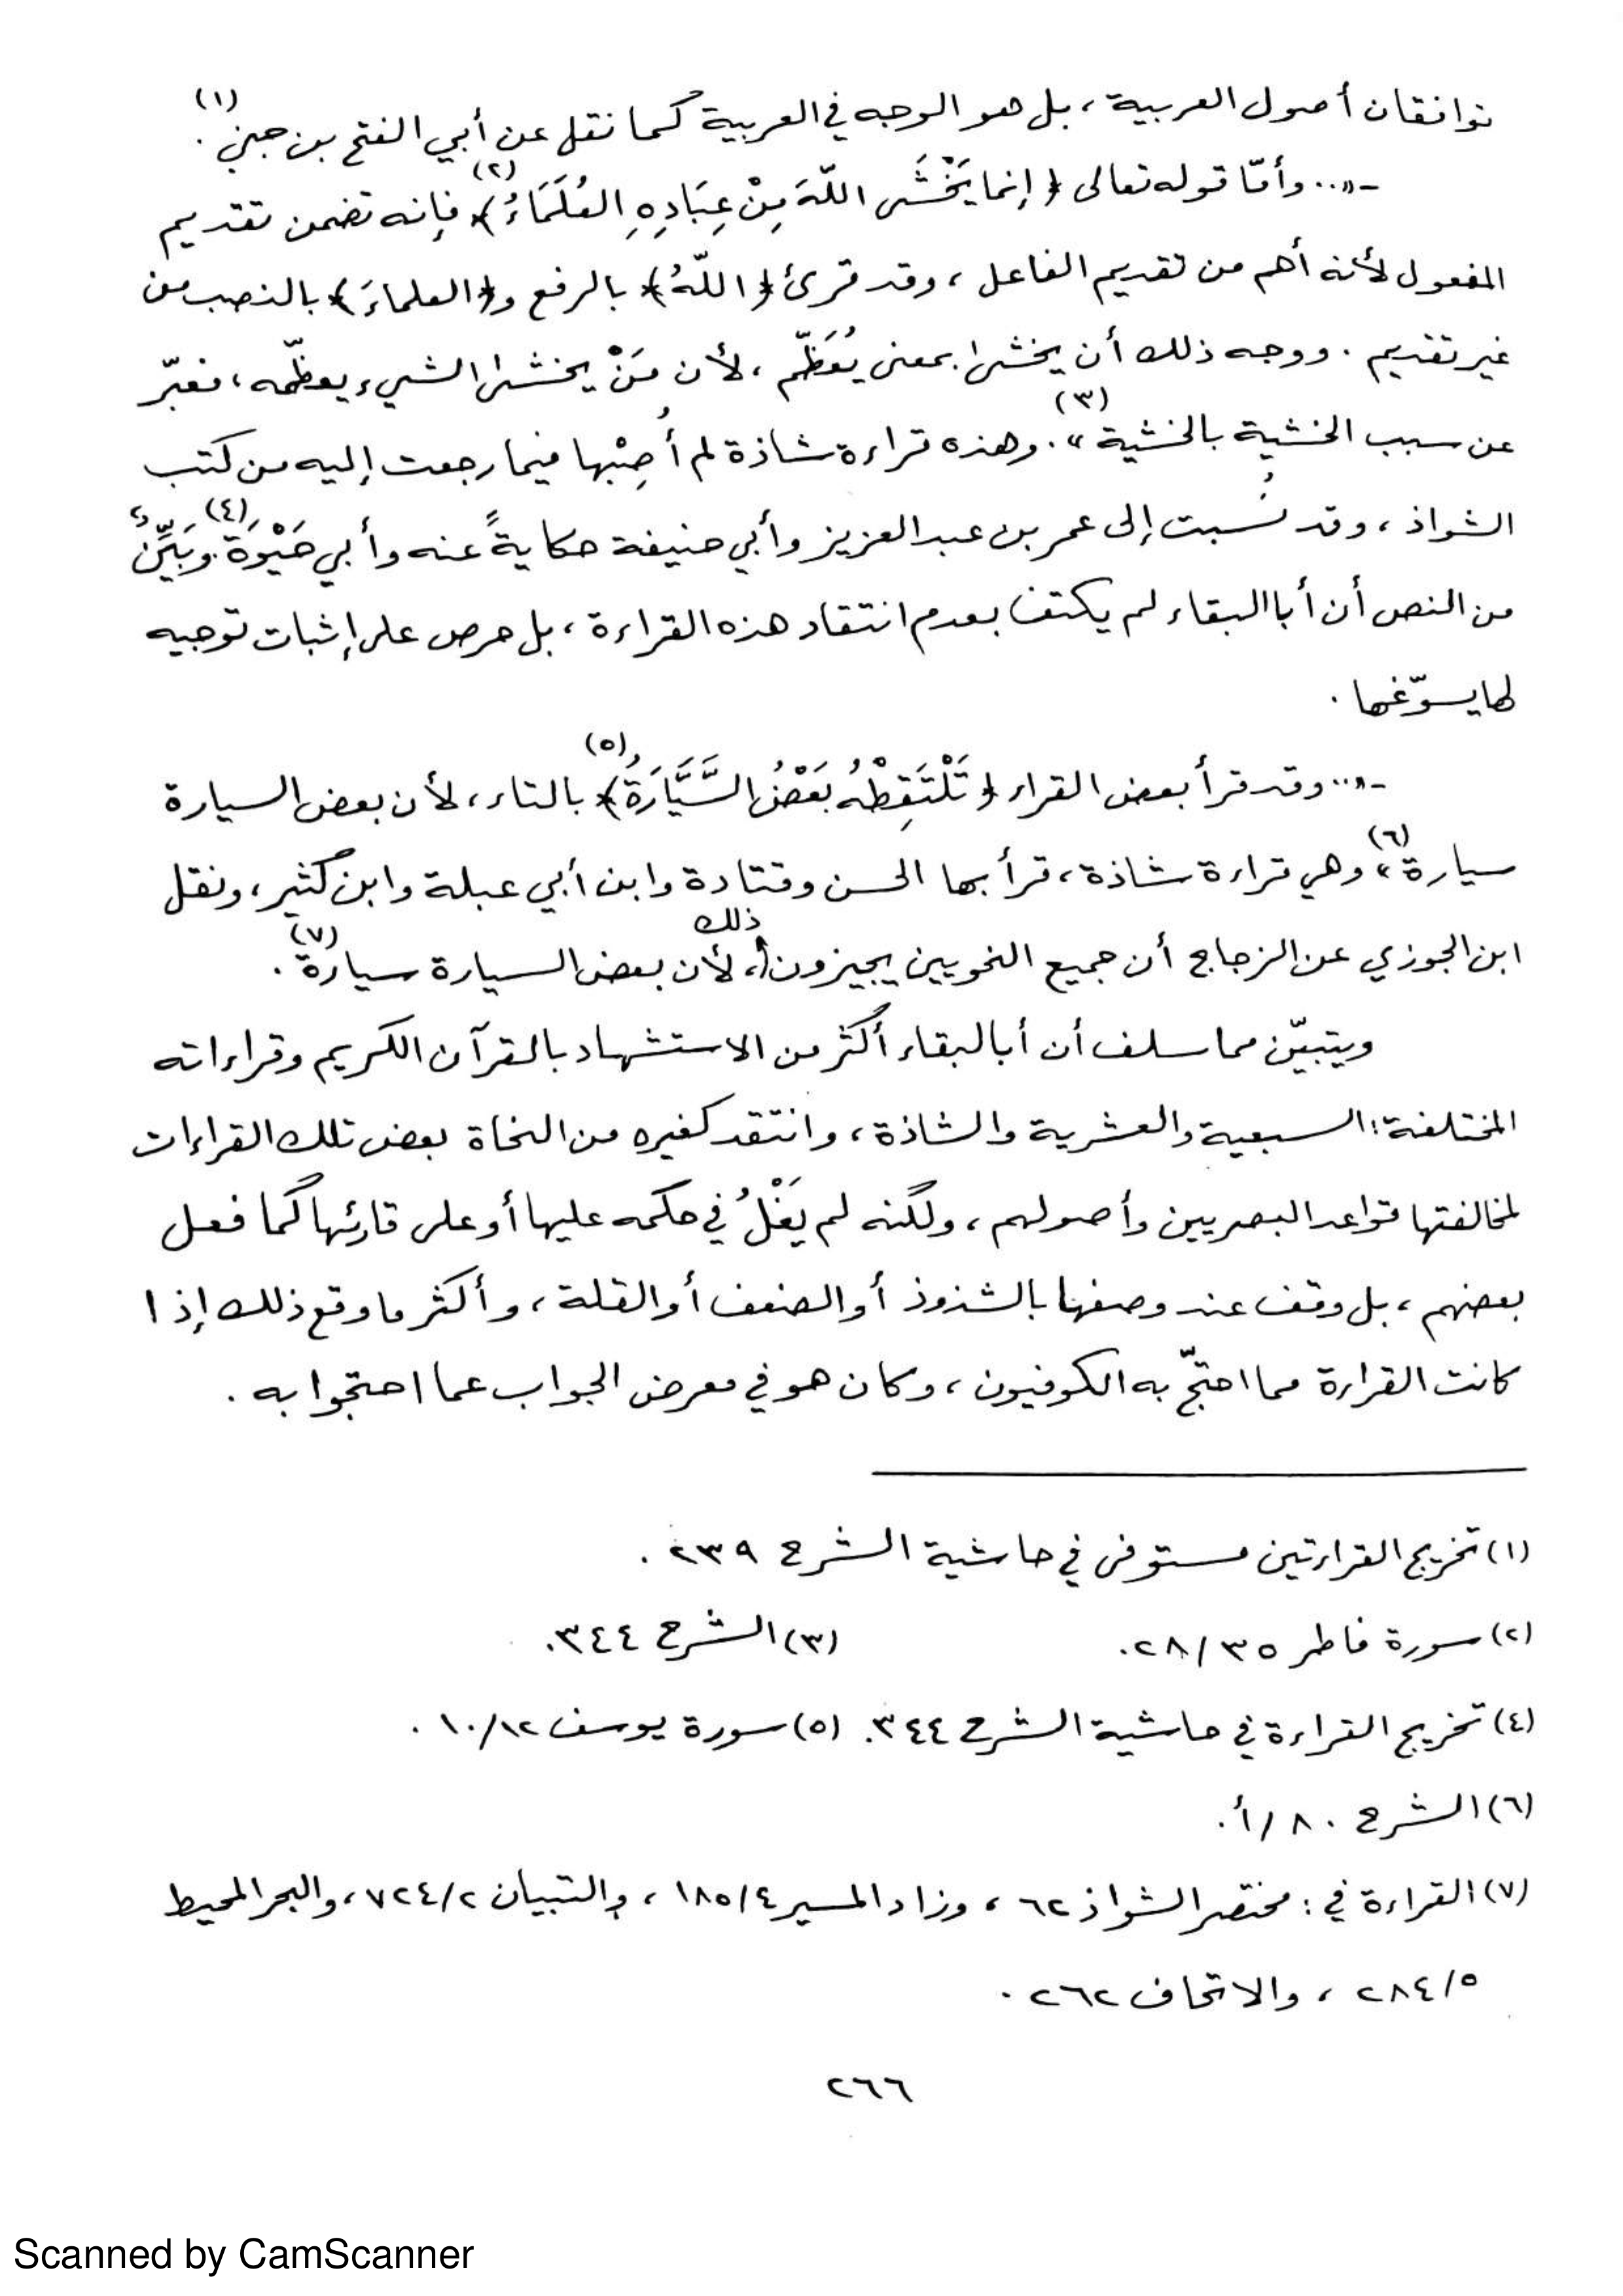 توافقان أصول العربية، بل هو الوجه في العربية كما نقل عن أبي الفتح بن جني(١).
- «... وأمّا قوله تعالى ﴿إنما يَخْشَى اللّهَ مِنْ عِبَادِهِ العُلَمَاءُ﴾(٢) فإنه تضمن تقديم
المفعول لأنه أهم من تقديم الفاعل، وقد قرئ ﴿اللّهُ﴾ بالرفع و﴿العلماءَ﴾ بالنصب من
غير تقديم. ووجه ذلك أن يخشى بمعنى يُعَظِّم، لأن مَنْ يخشى الشيء يعظّمه، فعبّر
عن سبب الخشية بالخشية»(٣). وهذه قراءة شاذة لم أُصِبْها فيما رجعت إليه من كتب
الشواذ، وقد نُسبت إلى عمر بن عبد العزيز وأبي حنيفة حكايةً عنه وأبي حَيْوَةَ(٤). وبَيِّنٌ
من النص أن أبا البقاء لم يكتف بعدم انتقاد هذه القراءة، بل حرص على إثبات توجيه
لها يسوّغها.
- «... وقد قرأ بعض القراء ﴿تَلْتَقِطْهُ بَعْضُ السَّيَّارَةِ﴾(٥) بالتاء، لأن بعض السيارة
سيارة»(٦) وهي قراءة شاذة، قرأ بها الحسن وقتادة وابن أبي عبلة وابن كثير، ونقل
ابن الجوزي عن الزجاج أن جميع النحويين يجيزون ذلك، لأن بعض السيارة سيارة(٧).
ويتبيّن مما سلف أن أبا البقاء أكثر من الاستشهاد بالقرآن الكريم وقراءاته
المختلفة: السبعية والعشرية والشاذة، وانتقد كغيره من النحاة بعض تلك القراءات
لمخالفتها قواعد البصريين وأصولهم، ولكنه لم يَغْلُ في حكمه عليها أو على قارئها كما فعل
بعضهم، بل وقف عند وصفها بالشذوذ أو الضعف أو القلة، وأكثر ما وقع ذلك إذا
كانت القراءة مما احتجّ به الكوفيون، وكان هو في معرض الجواب عما احتجوا به.
(١) تخريج القراءتين مستوفى في حاشية الشرح ٢٣٩.
(٢) سورة فاطر ٢٨/٣٥. (٣) الشرح ٣٤٤.
(٤) تخريج القراءة في حاشية الشرح ٣٤٤. (٥) سورة يوسف ١٠/١٢.
(٦) الشرح ٨٠/أ.
(٧) القراءة في: مختصر الشواذ ٦٢، وزاد المسير ١٨٥/٤، والتبيان ٧٢٤/٢، والبحر المحيط
٢٨٤/٥، والاتحاف ٢٦٢.
٢٦٦
Scanned by CamScanner